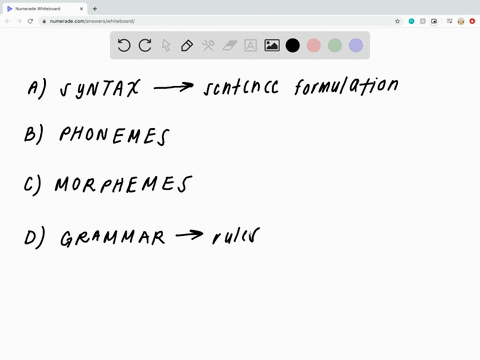 Numerade Whiteboard
numerade.com/answers/whiteboard/
A) SYNTAX → sentence formulation
B) PHONEMES
C) MORPHEMES
D) GRAMMAR → rules